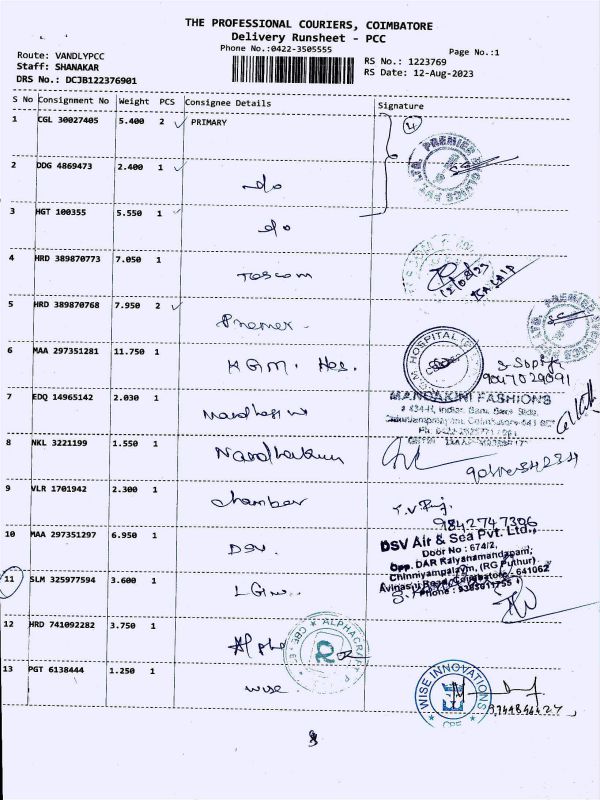 THE PROFESSIONAL COURIERS, COIMBATORE
Delivery Runsheet - PCC
Phone No.:0422-3505555
Page No.:1
Route: VANDLYPCC
Staff: SHANAKAR
DRS No.: DCJB122376901
RS No.: 1223769
RS Date: 12-Aug-2023
S No Consignment No Weight PCS Consignee Details Signature
1 CGL 30027405 5.400 2 PRIMARY
2 DDG 4869473 2.400 1 do
3 HGT 100355 5.550 1 do
4 HRD 389870773 7.050 1 Toscom
12/08/23
5 HRD 389870768 7.950 2 Premer
6 MAA 297351281 11.750 1 K.G.M. Hos.
HOSPITAL
9047029091
7 EDQ 14965142 2.030 1
MANDAKINI FASHIONS
8 NKL 3221199 1.550 1
9 VLR 1701942 2.300 1 chamber
9842747306
10 MAA 297351297 6.950 1 DSV.
DSV Air & Sea Pvt. Ltd.,
Door No : 674/2,
Opp. DAR Kalyanamandapam,
Chinniyampalayam, (RG Puthur)
Avinashi Road, Coimbatore - 641062
11 SLM 325977594 3.600 1
12 HRD 741092282 3.750 1 Alpha
13 PGT 6138444 1.250 1 wise
WISE INNOVATIONS
CBE